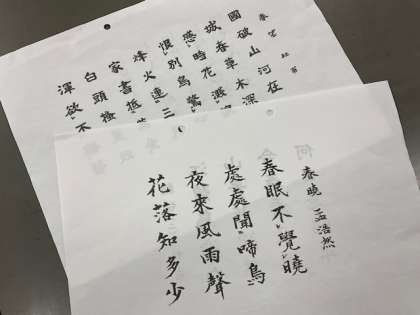 春望 杜甫
國破山河在
城春草木深
感時花濺
恨別鳥驚
烽火連三
家書抵
白頭搔
渾欲不
春曉 孟浩然
春眠不覺曉
處處聞啼鳥
夜來風雨聲
花落知多少